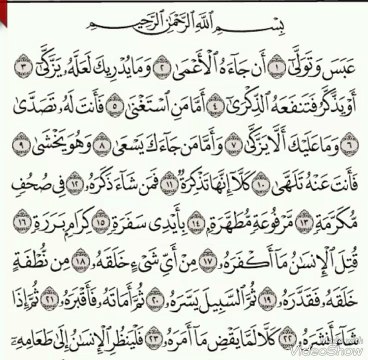 بِسْمِ ٱللَّهِ ٱلرَّحْمَٰنِ ٱلرَّحِيمِ
عَبَسَ وَتَوَلَّىٰٓ ١ أَن جَآءَهُ ٱلْأَعْمَىٰ ٢ وَمَا يُدْرِيكَ لَعَلَّهُۥ يَزَّكَّىٰٓ ٣
أَوْ يَذَّكَّرُ فَتَنفَعَهُ ٱلذِّكْرَىٰٓ ٤ أَمَّا مَنِ ٱسْتَغْنَىٰ ٥ فَأَنتَ لَهُۥ تَصَدَّىٰ
٦ وَمَا عَلَيْكَ أَلَّا يَزَّكَّىٰ ٧ وَأَمَّا مَن جَآءَكَ يَسْعَىٰ ٨ وَهُوَ يَخْشَىٰ ٩
فَأَنتَ عَنْهُ تَلَهَّىٰ ١٠ كَلَّآ إِنَّهَا تَذْكِرَةٌ ١١ فَمَن شَآءَ ذَكَرَهُۥ ١٢ فِى صُحُفٍ
مُّكَرَّمَةٍ ١٣ مَّرْفُوعَةٍ مُّطَهَّرَةٍۭ ١٤ بِأَيْدِى سَفَرَةٍ ١٥ كِرَامٍۭ بَرَرَةٍ ١٦
قُتِلَ ٱلْإِنسَٰنُ مَآ أَكْفَرَهُۥ ١٧ مِنْ أَىِّ شَىْءٍ خَلَقَهُۥ ١٨ مِن نُّطْفَةٍ
خَلَقَهُۥ فَقَدَّرَهُۥ ١٩ ثُمَّ ٱلسَّبِيلَ يَسَّرَهُۥ ٢٠ ثُمَّ أَمَاتَهُۥ فَأَقْبَرَهُۥ ٢١ ثُمَّ إِذَا
شَآءَ أَنشَرَهُۥ ٢٢ كَلَّا لَمَّا يَقْضِ مَآ أَمَرَهُۥ ٢٣ فَلْيَنظُرِ ٱلْإِنسَٰنُ إِلَىٰ طَعَامِهِۦٓ
VideoShow